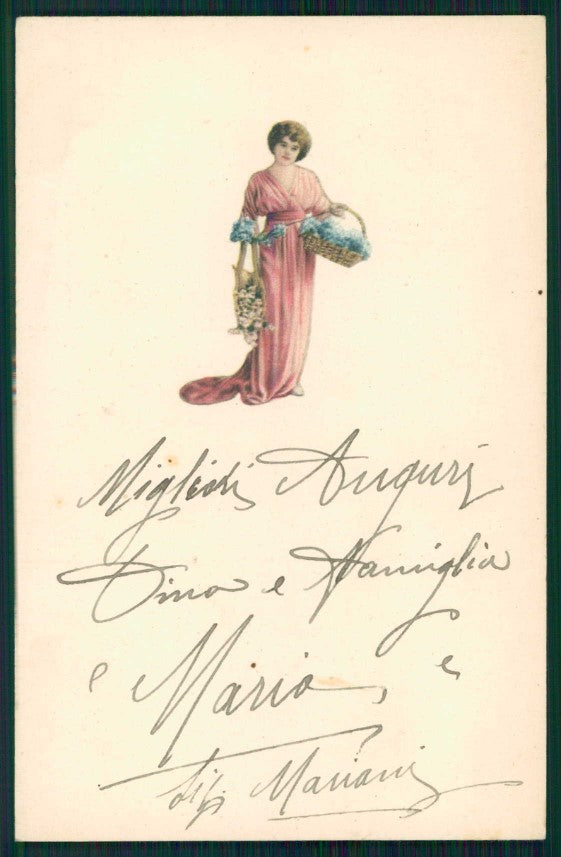 Migliori Auguri
Dino e Famiglia
e Maria, e
Mariani